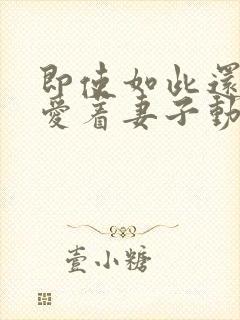 即使如此還
愛着妻子動
壹小糖